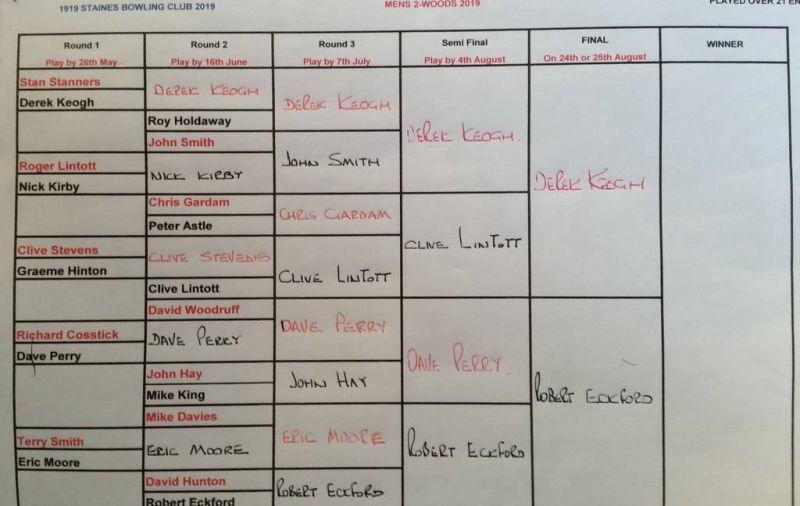 1919 STAINES BOWLING CLUB 2019
MENS 2-WOODS 2019
PLAYED OVER 21 EN
Round 1
Play by 26th May
Round 2
Play by 16th June
Round 3
Play by 7th July
Semi Final
Play by 4th August
FINAL
On 24th or 25th August
WINNER
Stan Stanners
Derek Keogh
Roger Lintott
Nick Kirby
Clive Stevens
Graeme Hinton
Richard Cosstick
Dave Perry
Terry Smith
Eric Moore
DEREK KEOGH
Roy Holdaway
John Smith
NICK KIRBY
Chris Gardam
Peter Astle
CLIVE STEVENS
Clive Lintott
David Woodruff
DAVE PERRY
John Hay
Mike King
Mike Davies
ERIC MOORE
David Hunton
Robert Eckford
DEREK KEOGH
JOHN SMITH
CHRIS GARDAM
CLIVE LINTOTT
DAVE PERRY
JOHN HAY
ERIC MOORE
ROBERT ECKFORD
DEREK KEOGH
CLIVE LINTOTT
DAVE PERRY
ROBERT ECKFORD
DEREK KEOGH
ROBERT ECKFORD